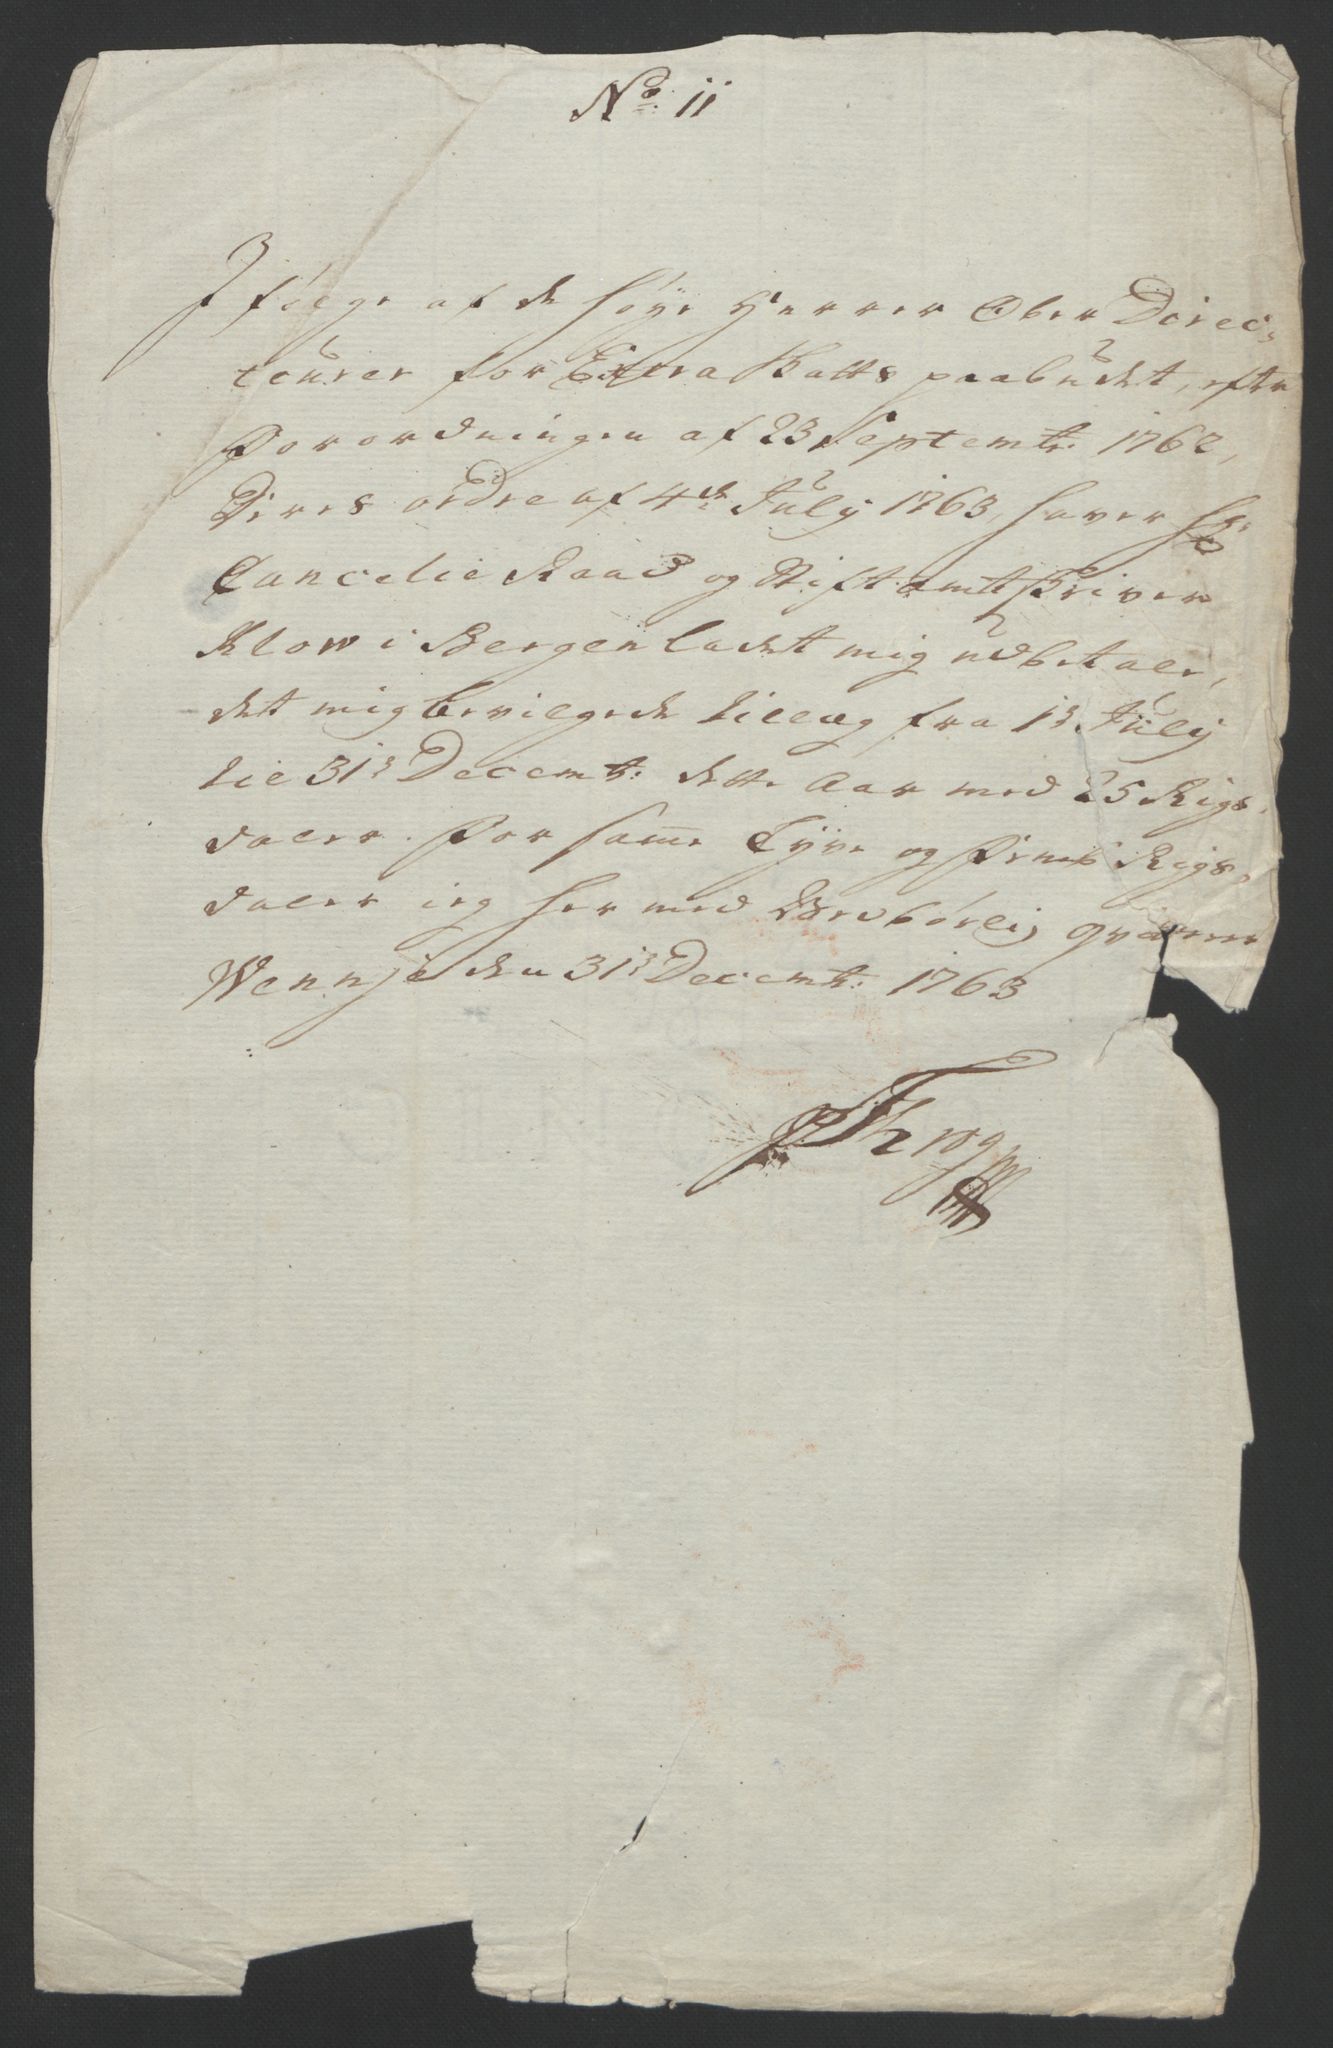 No. 11
I følge af de høye Herrer Ober Direc-
teurer for Extra Skatts paabudet, efter
Forordningen af 23 Septembr. 1762,
Deres ordre af 4de July 1763, haver Hr.
Cancelie Raad og Stiftamtskriver
Klow i Bergen ladet mig udbetale,
det mig bevilgede tillæg fra 1ste July
til 31te Decembr. dette Aar med 25 Rigs-
daler. For samme Tyve og Fem Rigs-
daler ieg her med Bedbørlig qvit
Wennje den 31te Decembr. 1763